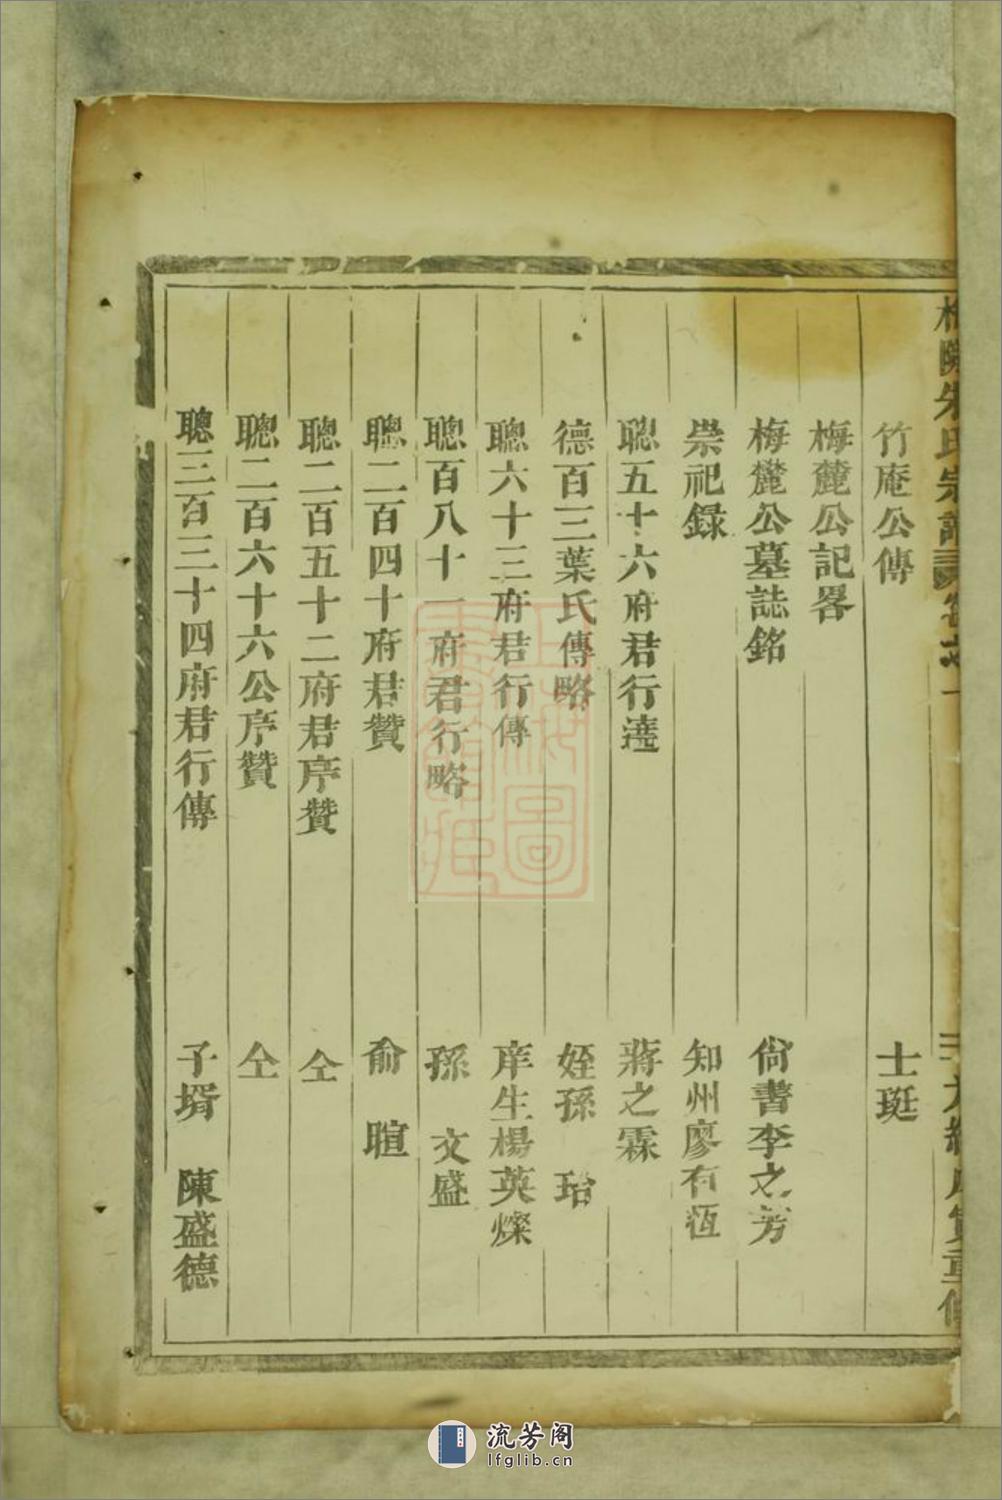 朱氏宗譜 卷之一
竹庵公傳 士珽
梅麓公記畧
梅麓公墓誌銘 尙書李之芳
崇祀録 知州廖有恆
聰五十六府君行達 蔣之霖
德百三葉氏傳略 姪孫 珆
聰六十三府君行傳 庠生楊英燦
聰百八十一府君行略 孫 文盛
聰二百四十府君贊 俞 暄
聰二百五十二府君序贊 仝
聰二百六十六公序贊 仝
聰三百三十四府君行傳 子壻 陳盛德
上海圖書館藏
流芳阁
lfglib.cn